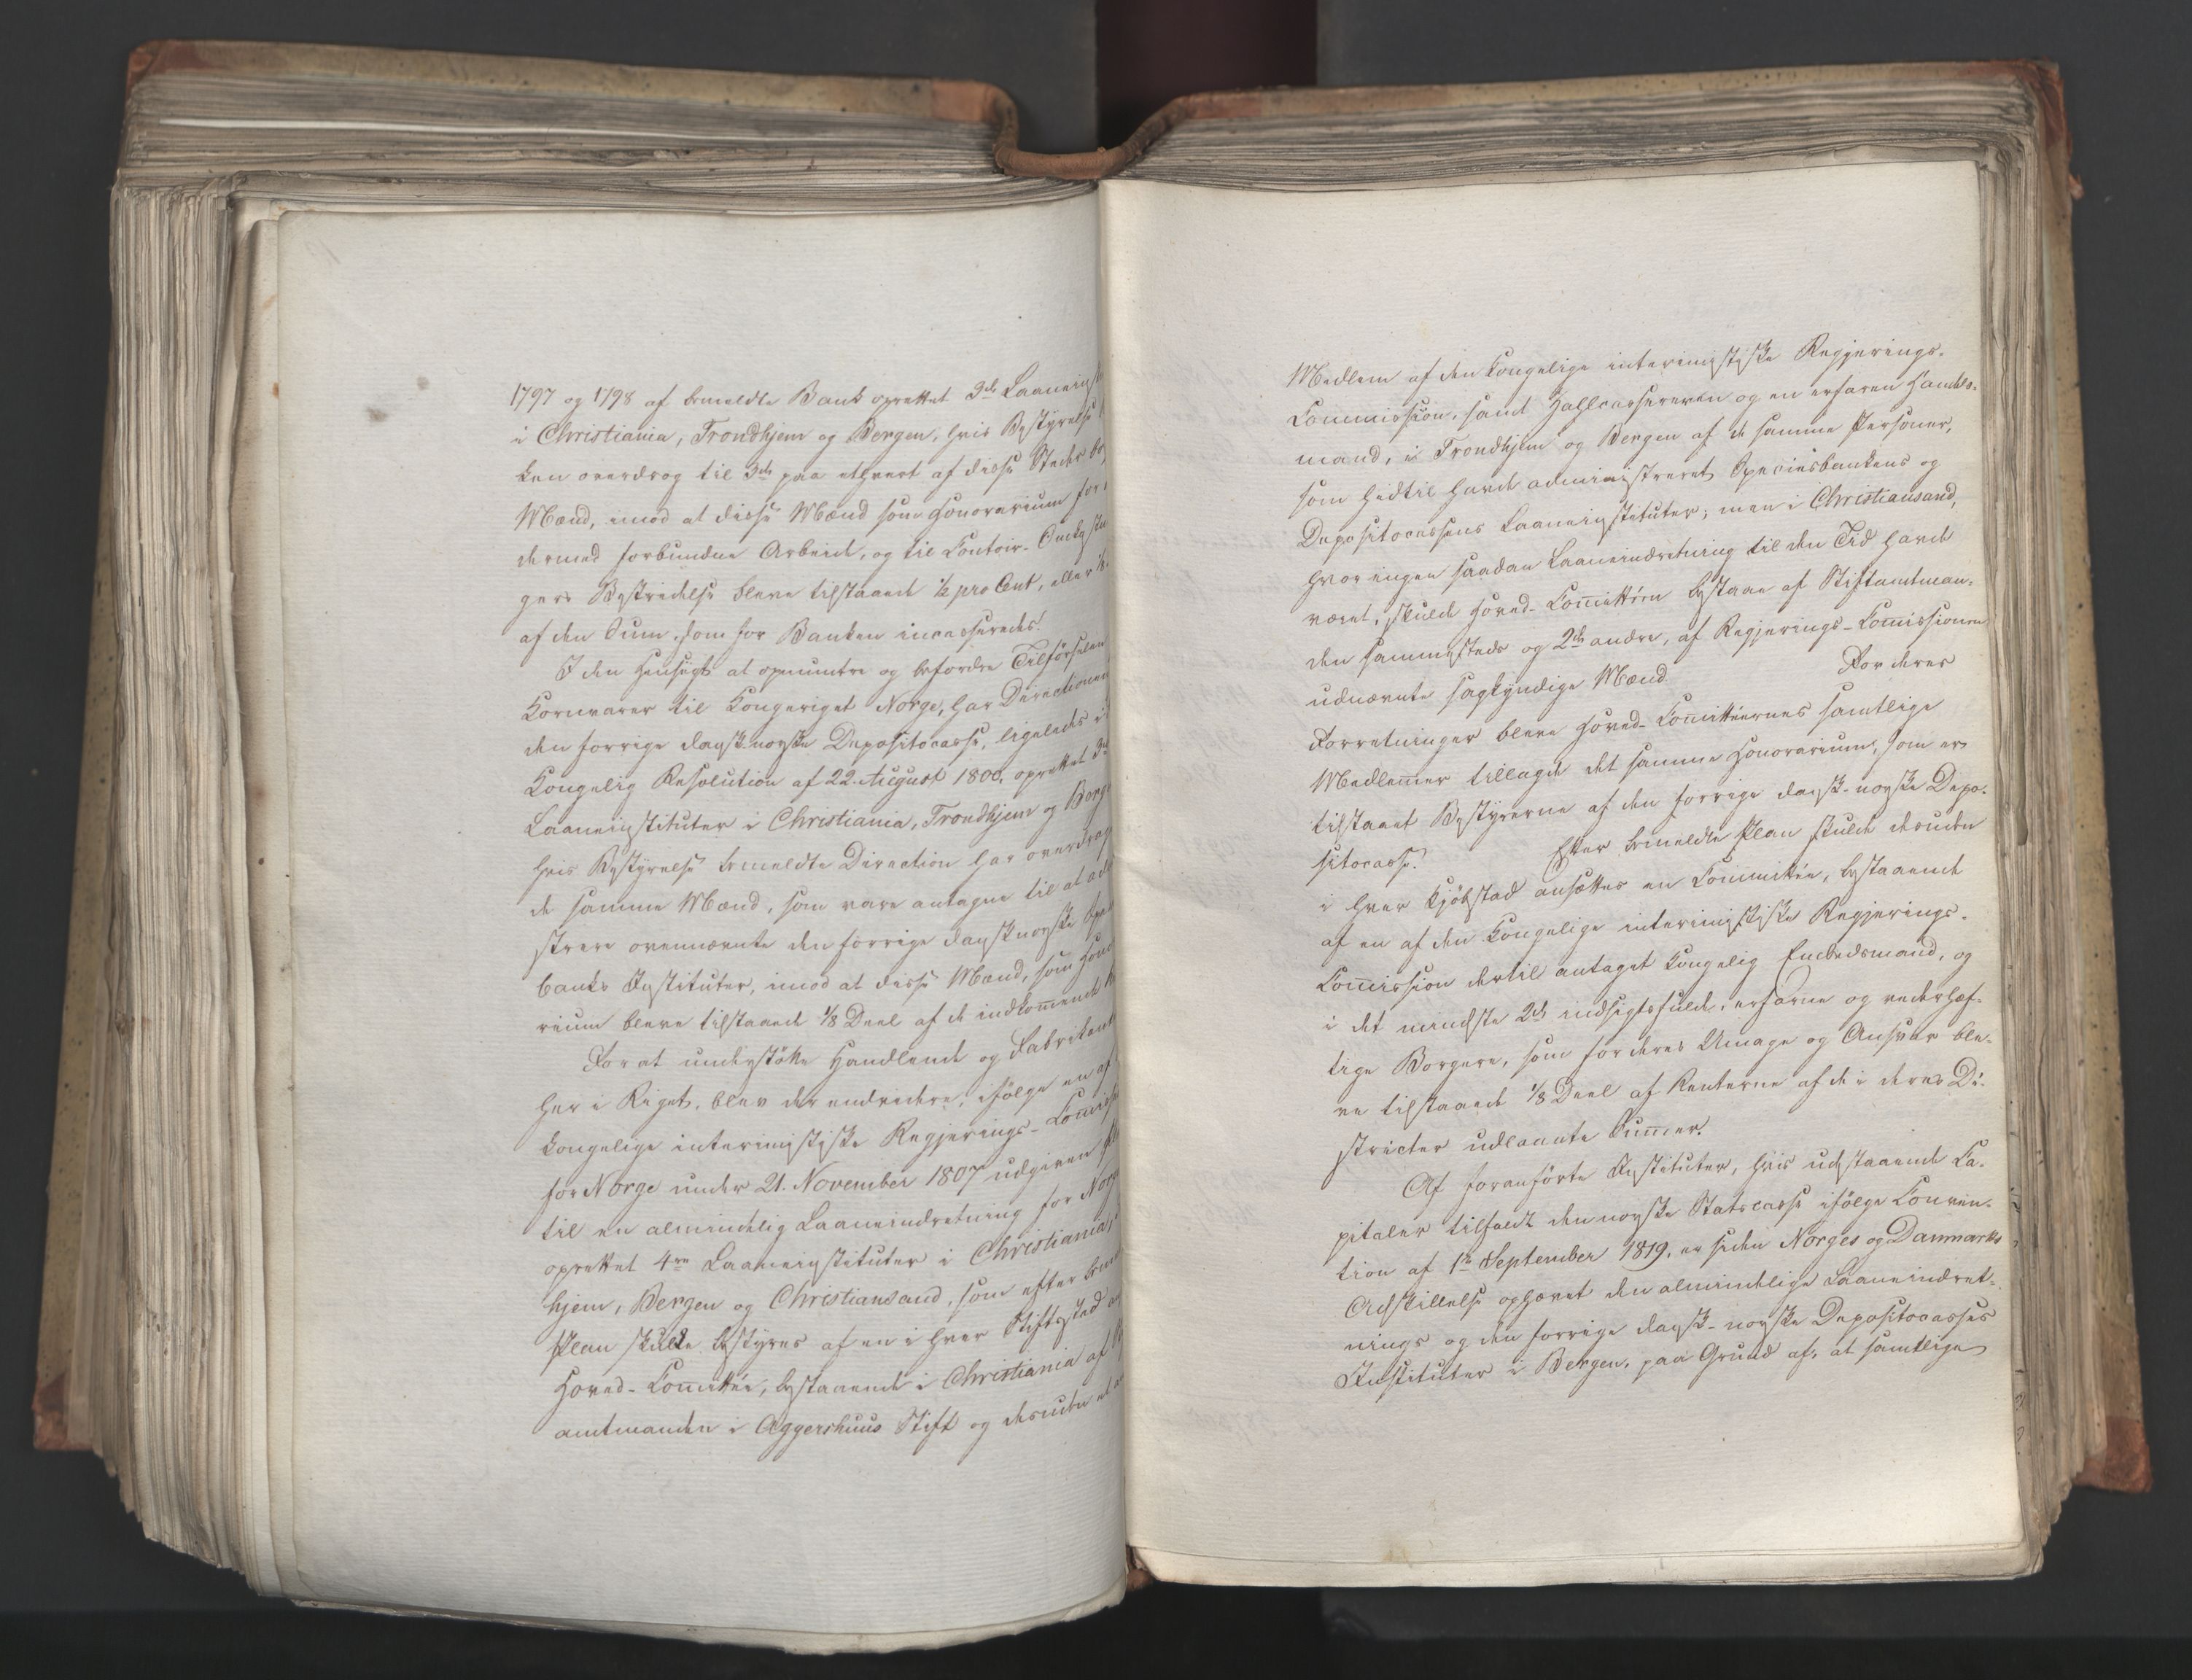 1797 og 1798 af bemeldte Bank oprettet 3de Laaneinst
i Christiania, Trondhjem og Bergen, hvis Bestyrelse
ken overdrog til 3de paa ethvert af disse Steder bo
Mænd, imod at disse Mænd som Honorarium for
dermed forbundne Arbeide, og til Contoir-Omkostnin
gers Bestridelse bleve tilstaaede ½ pro Cent, eller ⅛
af den Sum, som for Banken incasseredes.
I den Hensigt at opmuntre og befordre Tilførselen
Kornvarer til Kongeriget Norge, har Directionen
den forrige dansk-norske Depositocasse, ligeledes i
Kongelig Resolution af 22. August 1800, oprettet 3de
Laaneinstituter i Christiania, Trondhjem og Berge
hvis Bestyrelse bemeldte Direction har overdrag
de samme Mænd, som vare antagne til at ad
strere ovennævnte den forrige dansknorske Spe
banks Instituter, imod at disse Mænd, som Hono
rium bleve tilstaaede ⅛ Deel af de indkommende
For at understøtte Handlende og Fabrikant
her i Riget, blev der endvidere, ifølge en af
kongelige interimistiske Regjerings-Commiss
for Norge under 21. November 1807 udgiven
til en almindelig Laaneindretning for Norge
oprettet 4re Laaneinstituter i Christiania,
hjem, Bergen og Christiansand, som efter bem
Plan skulle bestyres af en i hver Stiftsstad
Hoved-Committée, bestaaende i Christiania af
amtmanden i Aggershuus Stift og desuden et
Medlem af den Kongelige interimistiske Regjerings-
Commission, samt Zahlcassereren og en erfaren Handels-
mand, i Trondhjem og Bergen af de samme Personer,
som hidtil havde administreret Speciesbankens og
Depositocassens Laaneinstituter; men i Christiansand,
hvor ingen saadan Laaneindretning til den Tid havde
været, skulde Hoved-Committéen bestaae af Stiftamtman-
den sammesteds og 2de andre, af Regjerings-Commissionen
udnævnte sagkyndige Mænd. For deres
Forretninger bleve Hoved-Committéernes samtlige
Medlemmer tillagde det samme Honorarium, som er
tilstaaet Bestyrerne af den forrige dansk-norske Depo-
sitocasse. Efter bemeldte Plan skulde desuden
i hver Kjöbstad ansættes en Committée, bestaaende
af en af den Kongelige interimistiske Regjerings-
Commission dertil antaget Kongelig Embedsmand, og
i det mindste 2de indsigtsfulde, erfarne og vederhæf-
tige Borgere, som for deres Umage og Ansvar ble-
ve tilstaaede ⅛ Deel af Renterne af de i deres Di-
stricter udlaante Summer.
Af foranførte Instituter, hvis udestaaende Ca-
pitaler tilfaldt den norske Statscasse ifølge Conven-
tion af 1ste September 1819, er siden Norges og Danmarks
Adskillelse ophævet den almindelige Laaneindret-
nings og den forrige dansk-norske Depositocasses
Instituter i Bergen, paa Grund af, at samtlige